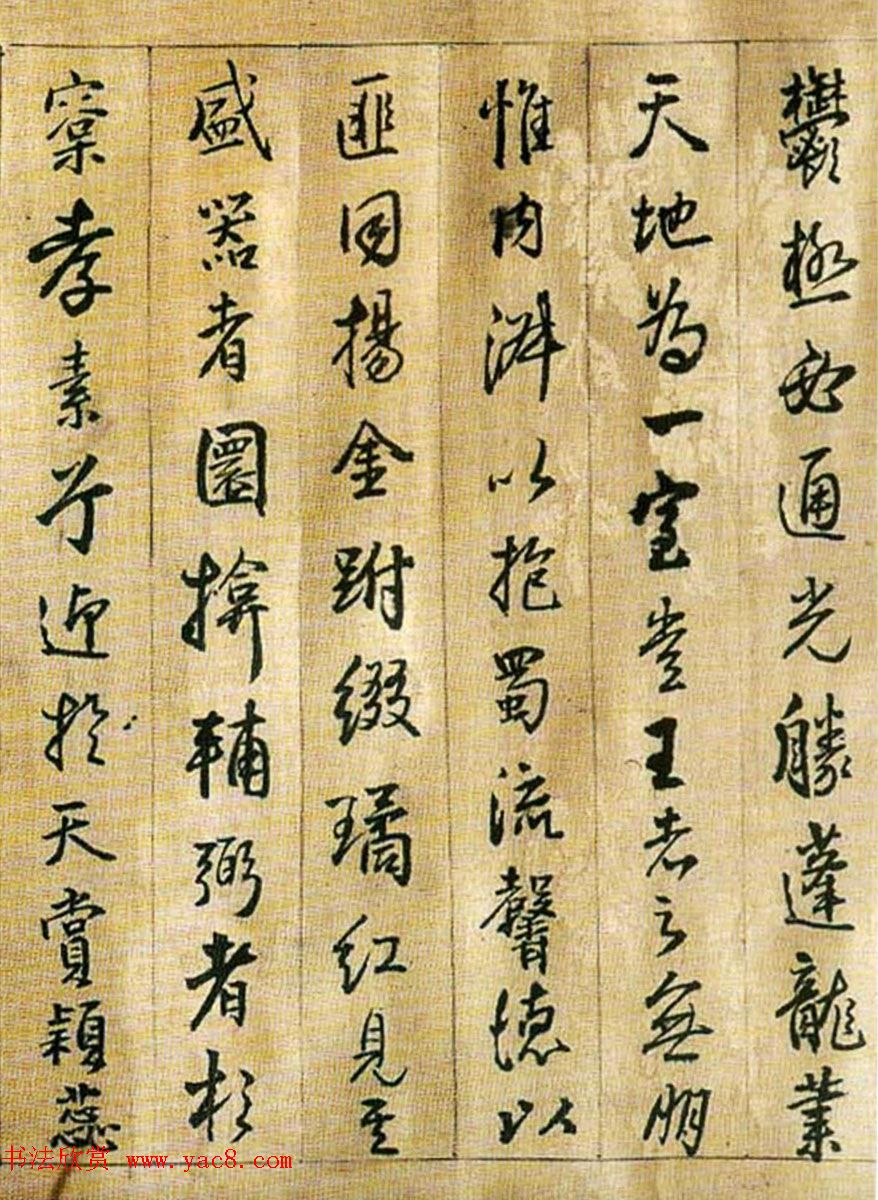 鬱極必通光騰蓬龍業
天地為一室豈王者之無朋
惟肉湃以抱蜀流馨德以
匪因揚金跗綴璚紅見其
盛器者圜揜輔弼者杉
窠孝素於迎於天賞穎蕊
书法欣赏 www.yac8.com